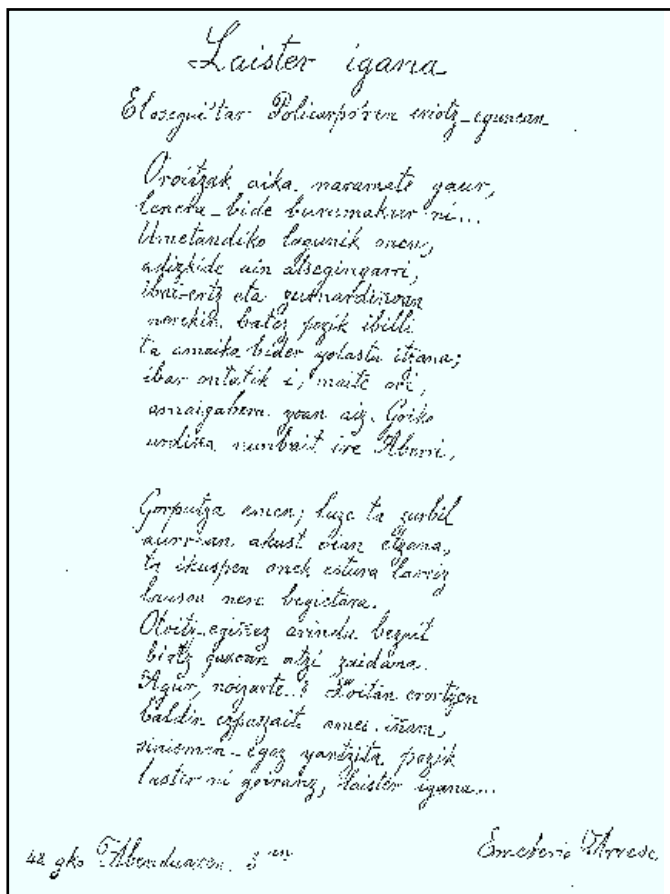 Laister igana
Elosegui'tar Policarpo'ren eriotz-egunean
Oroitzak aika naramate gaur,
leneka-bide burumakur ni...
Umetandiko lagunik onen,
adizkide ain atsegingarri,
ibai-ertz eta
nerekin batez pozik ibilli
ta amaika bider yolastu itzana;
ibar ontatik i, maite ori,
amaigabera zoan aiz. Goiko
urdiña nunbait ire Aberri,
Gorputza emen; luze ta zurbil
aurrian akust oian etzana,
ta ikuspen onek estura larriz
lausou nere begietara.
Otoitz-egiñez arindu bezait
biotz gaxoan atzi zaidana.
Agur, noizarte..? Loitan erortzen
baldin ezpazait amei iñam,
sinismen-egoz yantzita pozik
laster ni goiranz, laister igana...
42 gko Abenduaren 3 en
Emeterio Arrese